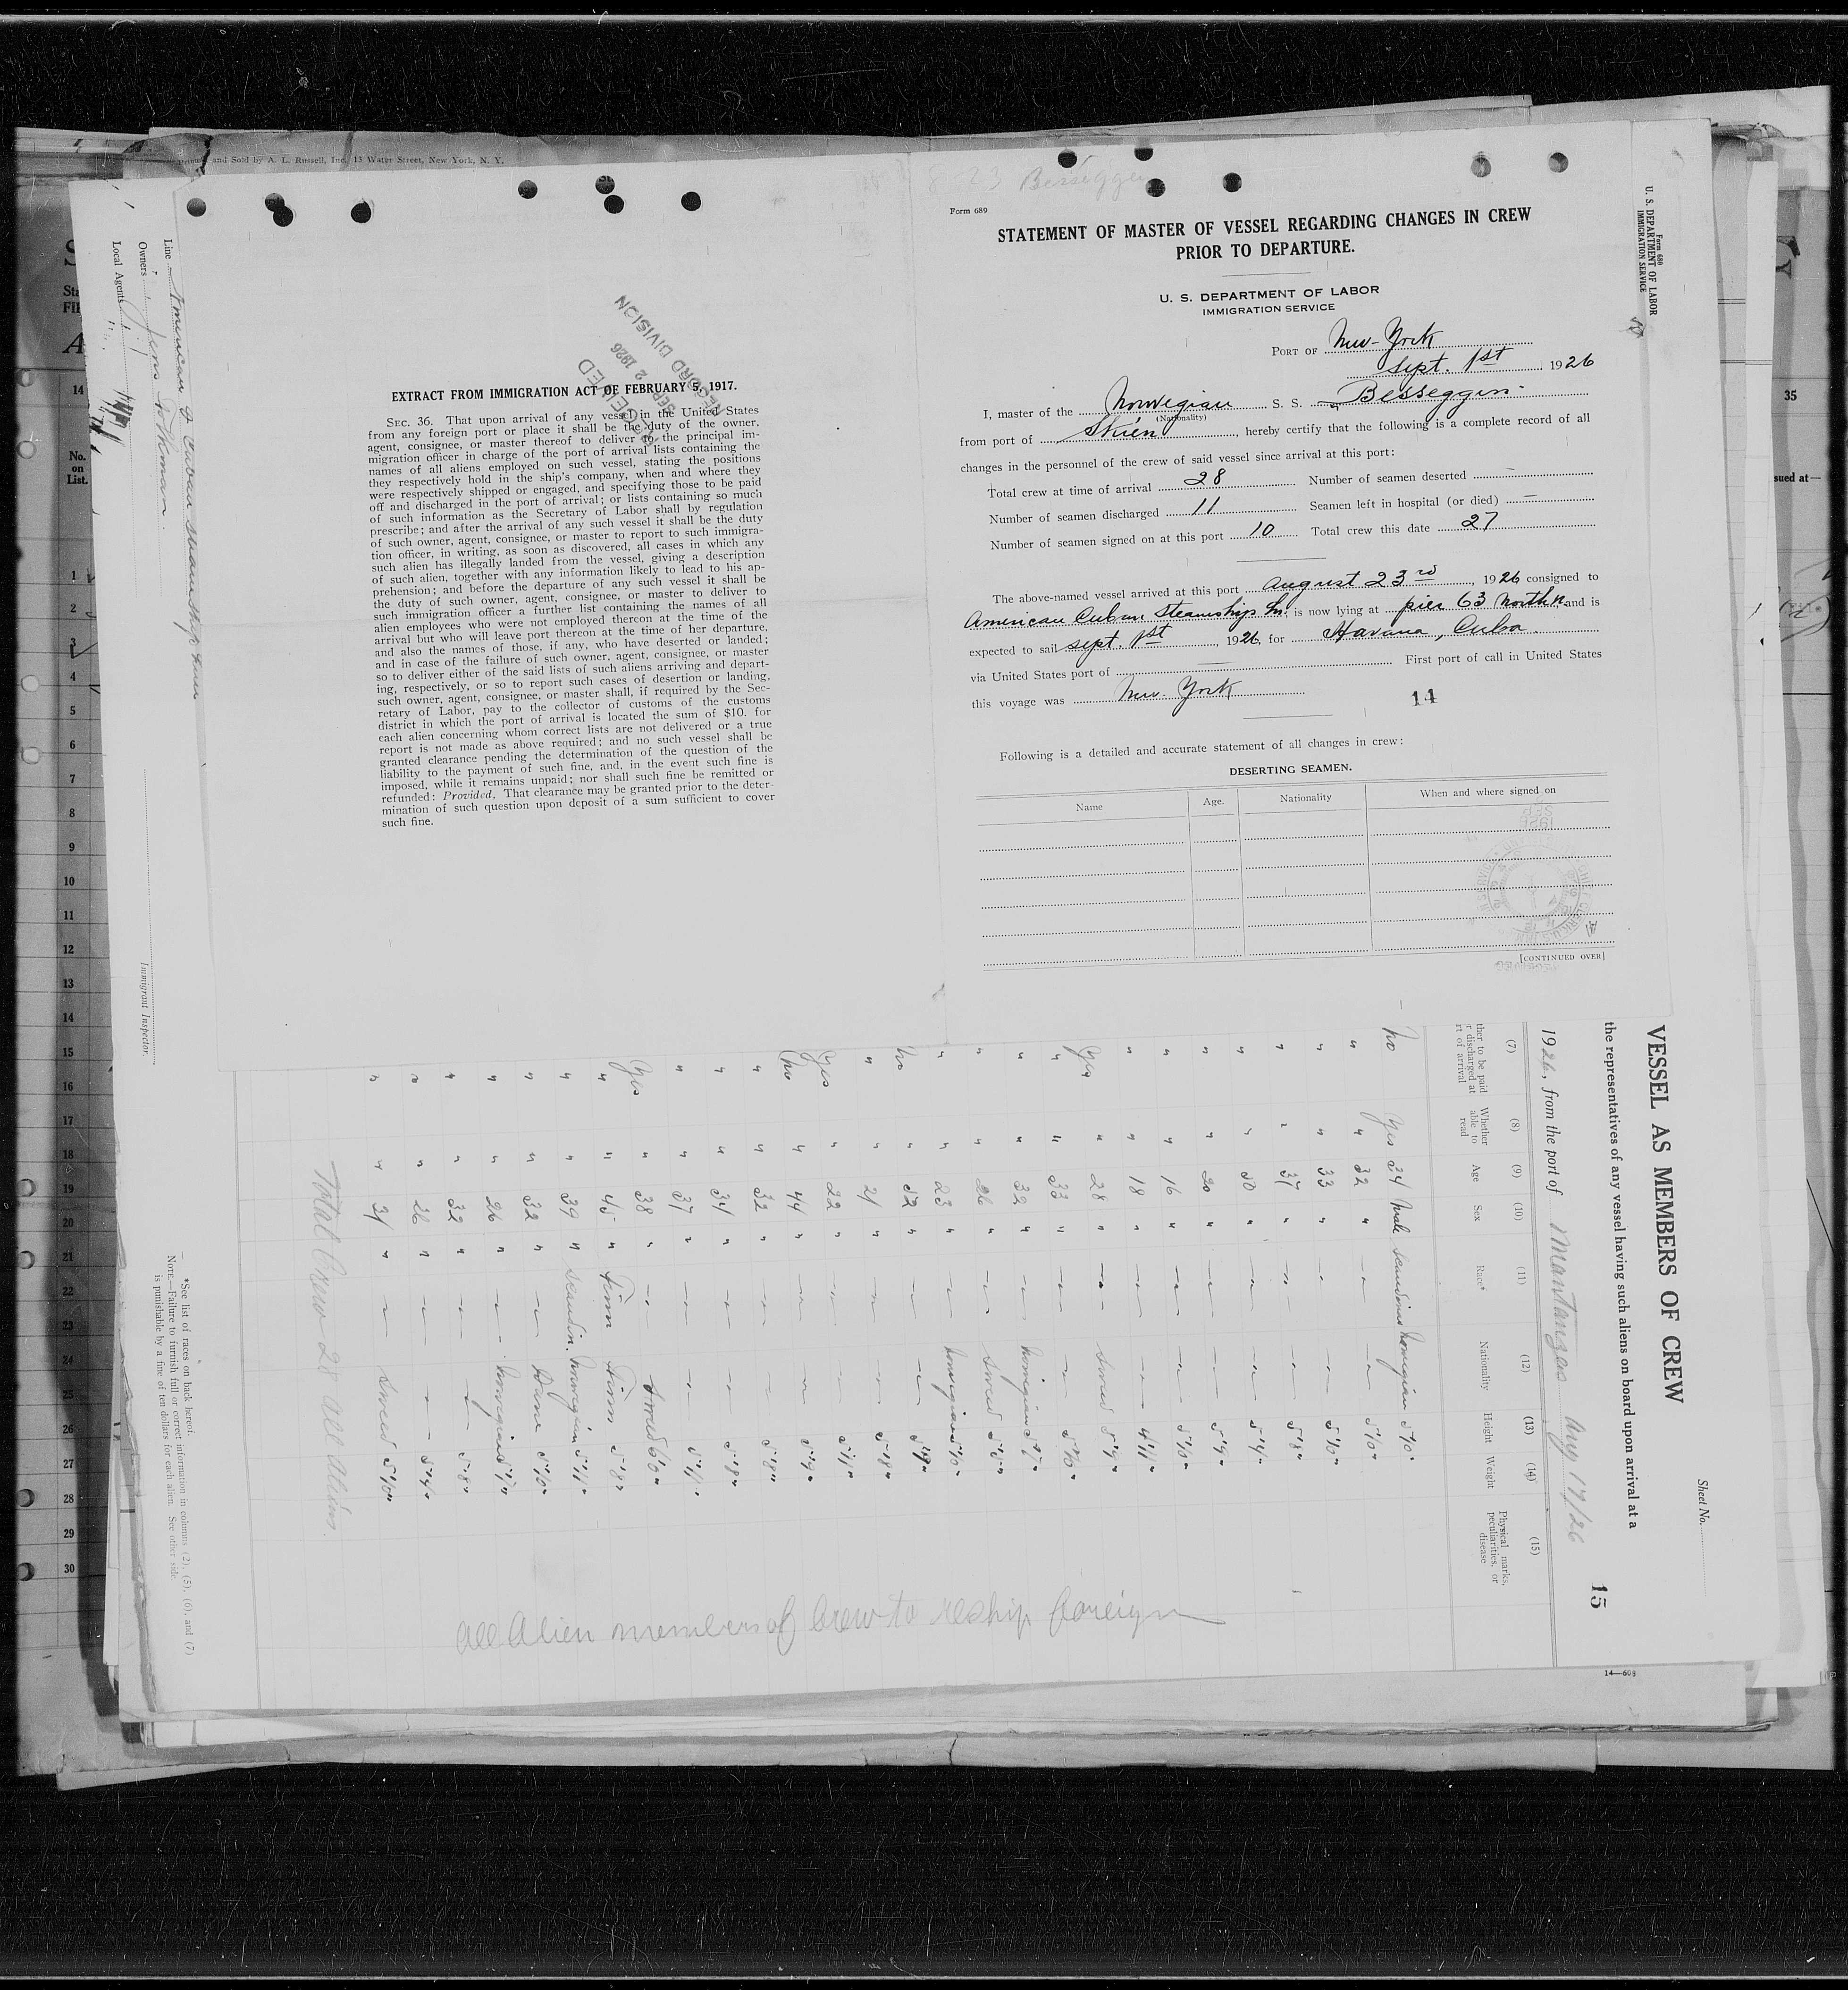 and Sold by A. L. Russell, Inc. 13 Water Street, New York, N. Y.
8 23 Besseggen
Form 689
STATEMENT OF MASTER OF VESSEL REGARDING CHANGES IN CREW
PRIOR TO DEPARTURE.
U. S. DEPARTMENT OF LABOR
IMMIGRATION SERVICE
PORT OF New-York
Sept. 1st, 1926
I, master of the Norwegian S. S. Besseggen
(Nationality)
from port of Skien, hereby certify that the following is a complete record of all
changes in the personnel of the crew of said vessel since arrival at this port:
Total crew at time of arrival 28 Number of seamen deserted —
Number of seamen discharged 11 Seamen left in hospital (or died) —
Number of seamen signed on at this port 10 Total crew this date 27
The above-named vessel arrived at this port August 23rd, 1926 consigned to
American Cuban Steamship Ln. is now lying at pier 63 North R. and is
expected to sail sept. 1st, 1926, for Havana, Cuba
via United States port of — First port of call in United States
this voyage was New-York
14
Following is a detailed and accurate statement of all changes in crew:
DESERTING SEAMEN.
Name Age. Nationality When and where signed on
[CONTINUED OVER]
RECEIVED
SEP 2 1926
RECORD DIVISION
EXTRACT FROM IMMIGRATION ACT OF FEBRUARY 5, 1917.
SEC. 36. That upon arrival of any vessel in the United States
from any foreign port or place it shall be the duty of the owner,
agent, consignee, or master thereof to deliver to the principal im-
migration officer in charge of the port of arrival lists containing the
names of all aliens employed on such vessel, stating the positions
they respectively hold in the ship's company, when and where they
were respectively shipped or engaged, and specifying those to be paid
off and discharged in the port of arrival; or lists containing so much
of such information as the Secretary of Labor shall by regulation
prescribe; and after the arrival of any such vessel it shall be the duty
of such owner, agent, consignee, or master to report to such immigra-
tion officer, in writing, as soon as discovered, all cases in which any
such alien has illegally landed from the vessel, giving a description
of such alien, together with any information likely to lead to his ap-
prehension; and before the departure of any such vessel it shall be
the duty of such owner, agent, consignee, or master to deliver to
such immigration officer a further list containing the names of all
alien employees who were not employed thereon at the time of the
arrival but who will leave port thereon at the time of her departure,
and also the names of those, if any, who have deserted or landed;
and in case of the failure of such owner, agent, consignee, or master
so to deliver either of the said lists of such aliens arriving and depart-
ing, respectively, or so to report such cases of desertion or landing,
such owner, agent, consignee, or master shall, if required by the Sec-
retary of Labor, pay to the collector of customs of the customs
district in which the port of arrival is located the sum of $10. for
each alien concerning whom correct lists are not delivered or a true
report is not made as above required; and no such vessel shall be
granted clearance pending the determination of the question of the
liability to the payment of such fine, and, in the event such fine is
imposed, while it remains unpaid; nor shall such fine be remitted or
refunded: Provided, That clearance may be granted prior to the deter-
mination of such question upon deposit of a sum sufficient to cover
such fine.
Form 680
U. S. DEPARTMENT OF LABOR
IMMIGRATION SERVICE
Sheet No.
VESSEL AS MEMBERS OF CREW
15
the representatives of any vessel having such aliens on board upon arrival at a
1926, from the port of Mantanzas Aug 17/26
(7) (8) (9) (10) (11) (12) (13) (14) (15)
ther to be paid
r discharged at
rt of arrival
Whether
able to
read
Age
Sex
Race*
Nationality
Height
Weight
Physical marks,
peculiarities, or
disease
no yes 34 male Norwegian 5'10"
" " 32 " 5'10"
" " 33 " 5'10"
" " 37 " 5'8"
" " 50 " 5'9"
" " 20 " 5'9"
" " 16 " 5'10"
" " 18 " 4'11"
yes " 28 " Swed 5'9"
" " 33 " 5'10"
" " 32 " Norwegian 5'7"
" " 26 " Swed
" " 23 " Norwegian 5'10"
no " 52 " 5'9"
" " 21 " 5'8"
yes " 22 " 5'11"
no " 44 " 5'9"
" " 32 " 5'8"
" " 34 " 5'8"
" " 37 " 5'11"
yes " 38 " Swed 6'0"
" " 45 " Finn Finn 5'8"
" " 39 " Scandin. Norwegian 5'11"
" " 32 " Dane 5'10"
" " 26 " Norwegian 5'7"
" " 32 " 5'8"
" " 26 " 5'9"
" " 31 " Swed 5'10"
Total Crew 28 all aliens.
all Alien members of Crew to reship foreign
*See list of races on back hereof.
NOTE.—Failure to furnish full or correct information in columns (2), (5), (6), and (7)
is punishable by a fine of ten dollars for each alien. See other side.
14—608
Line American & Cuban Steamship Line
Owners Jens
Local Agents
Immigrant Inspector.
14
No.
on
List.
1
2
3
4
5
6
7
8
9
10
11
12
13
14
15
16
17
18
19
20
21
22
23
24
25
26
27
28
29
30
35
sued at—